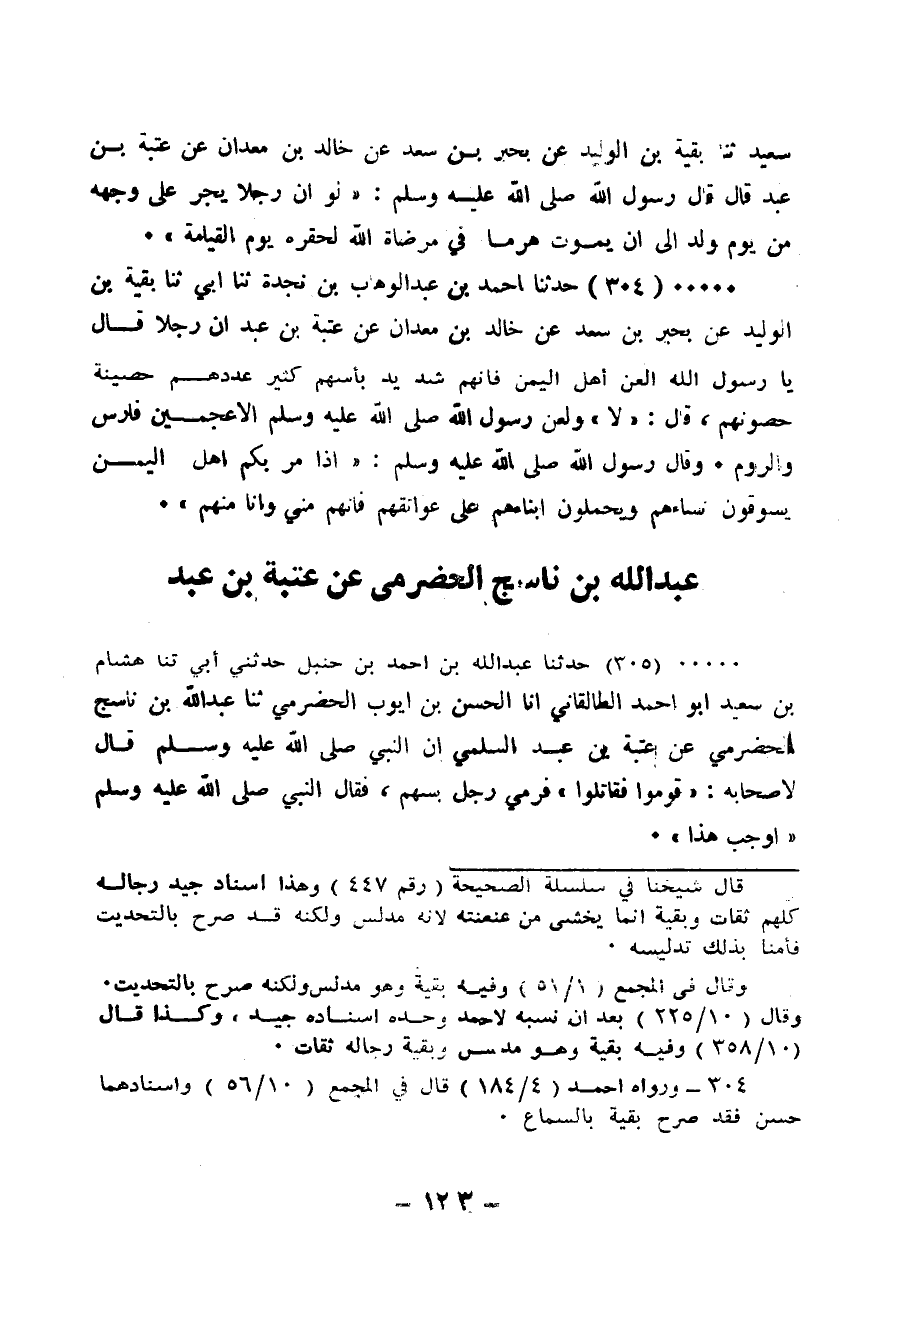 سعيد ثنا بقية بن الوليد عن بحير بـن سعد عن خالد بن معدان عن عتبة بـن
عبد قال قال رسول الله صلى الله عليـه وسلم : « لو ان رجلا يجر على وجهه
من يوم ولد الى ان يمـوت هرمـا في مرضاة الله لحقره يوم القيامة » ٠
٠٠٠٠٠ ( ٣٠٤ ) حدثنا احمد بن عبدالوهاب بن نجدة ثنا ابي ثنا بقية بن
الوليد عن بحير بن سعد عن خالد بن معدان عن عتبة بن عبد ان رجلا قـال
يا رسول الله العن أهل اليمن فانهم شد يد بأسهم كثير عددهـم حصينة
حصونهم ، قال : « لا » ولعن رسول الله صلى الله عليه وسلم الاعجمـين فارس
والروم ٠ وقال رسول الله صلى الله عليه وسلم : « اذا مر بكم اهل اليمـن
يسوقون نساءهم ويحملون ابناءهم على عواتقهم فانهم مني وانا منهم » ٠
عبدالله بن ناسج الحضرمى عن عتبة بن عبد
٠٠٠٠٠ (٣٠٥) حدثنا عبدالله بن احمد بن حنبل حدثني أبي ثنا هشام
بن سعيد ابو احمد الطالقاني انا الحسن بن ايوب الحضرمي ثنا عبدالله بن ناسج
الحضرمي عن عتبة بن عبـد السلمي ان النبي صلى الله عليه وسـلم قـال
لاصحابه : « قوموا فقاتلوا » فرمي رجل بسهم ، فقال النبي صلى الله عليه وسلم
« اوجب هذا » ٠
قال شيخنا في سلسلة الصحيحة ( رقم ٤٤٧ ) وهذا اسناد جيد رجالـه
كلهم ثقات وبقية انما يخشى من عنعنته لانه مدلس ولكنه قـد صرح بالتحديث
فأمنا بذلك تدليسه ٠
وقال في المجمع ( ٥١/١ ) وفيـه بقية وهو مدلس ولكنه صرح بالتحديث٠
وقال ( ٢٢٥/١٠ ) بعد ان نسبه لاحمد وحـده اسنـاده جيـد ، وكـذا قـال
(٣٥٨/١٠ ) وفيـه بقية وهـو مدلس وبقية رجاله ثقات ٠
٣٠٤ ـ ورواه احمـد ( ١٨٤/٤ ) قال في المجمع ( ٥٦/١٠ ) واسنادهما
حسن فقد صرح بقية بالسماع ٠
- ١٢٣ -